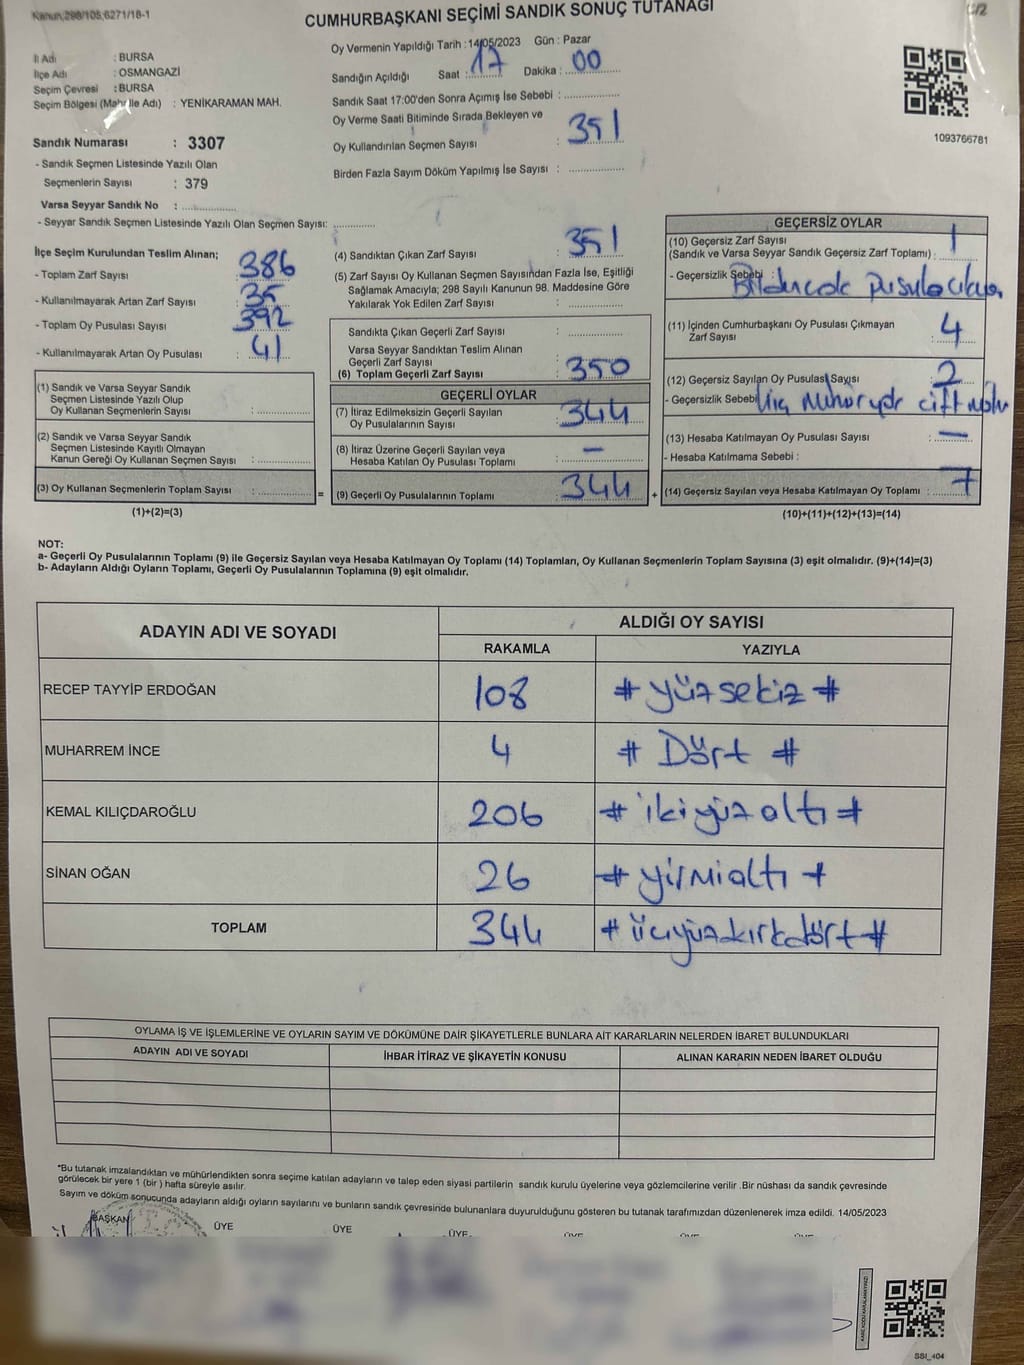 Kanun;298/105;6271/18-1
CUMHURBAŞKANI SEÇİMİ SANDIK SONUÇ TUTANAĞI
/2
İl Adı : BURSA
İlçe Adı : OSMANGAZİ
Seçim Çevresi : BURSA
Seçim Bölgesi (Mahalle Adı) : YENİKARAMAN MAH.
Sandık Numarası : 3307
- Sandık Seçmen Listesinde Yazılı Olan
Seçmenlerin Sayısı : 379
Varsa Seyyar Sandık No : ..............
- Seyyar Sandık Seçmen Listesinde Yazılı Olan Seçmen Sayısı: ............
Oy Vermenin Yapıldığı Tarih : 14/05/2023 Gün : Pazar
Sandığın Açıldığı Saat : 17 Dakika : 00
Sandık Saat 17:00'den Sonra Açımış İse Sebebi : ..............
Oy Verme Saati Bitiminde Sırada Bekleyen ve
Oy Kullandırılan Seçmen Sayısı : 351
Birden Fazla Sayım Döküm Yapılmış İse Sayısı : ..............
1093766781
İlçe Seçim Kurulundan Teslim Alınan;
- Toplam Zarf Sayısı : 386
- Kullanılmayarak Artan Zarf Sayısı : 35
- Toplam Oy Pusulası Sayısı : 392
- Kullanılmayarak Artan Oy Pusulası : 41
(1) Sandık ve Varsa Seyyar Sandık
Seçmen Listesinde Yazılı Olup
Oy Kullanan Seçmenlerin Sayısı : ..............
(2) Sandık ve Varsa Seyyar Sandık
Seçmen Listesinde Kayıtlı Olmayan
Kanun Gereği Oy Kullanan Seçmen Sayısı : ..............
(3) Oy Kullanan Seçmenlerin Toplam Sayısı : .............. =
(1)+(2)=(3)
(4) Sandıktan Çıkan Zarf Sayısı : 351
(5) Zarf Sayısı Oy Kullanan Seçmen Sayısından Fazla İse, Eşitliği
Sağlamak Amacıyla; 298 Sayılı Kanunun 98. Maddesine Göre
Yakılarak Yok Edilen Zarf Sayısı : ..............
Sandıkta Çıkan Geçerli Zarf Sayısı : ..............
Varsa Seyyar Sandıktan Teslim Alınan
Geçerli Zarf Sayısı
(6) Toplam Geçerli Zarf Sayısı : 350
GEÇERLİ OYLAR
(7) İtiraz Edilmeksizin Geçerli Sayılan
Oy Pusulalarının Sayısı : 344
(8) İtiraz Üzerine Geçerli Sayılan veya
Hesaba Katılan Oy Pusulası Toplamı : —
(9) Geçerli Oy Pusulalarının Toplamı : 344 +
GEÇERSİZ OYLAR
(10) Geçersiz Zarf Sayısı
(Sandık ve Varsa Seyyar Sandık Geçersiz Zarf Toplamı) : 1
- Geçersizlik Sebebi : pusula
(11) İçinden Cumhurbaşkanı Oy Pusulası Çıkmayan
Zarf Sayısı : 4
(12) Geçersiz Sayılan Oy Pusulası Sayısı : 2
- Geçersizlik Sebebi çift
(13) Hesaba Katılmayan Oy Pusulası Sayısı : —
- Hesaba Katılmama Sebebi :
(14) Geçersiz Sayılan veya Hesaba Katılmayan Oy Toplamı : 7
(10)+(11)+(12)+(13)=(14)
NOT:
a- Geçerli Oy Pusulalarının Toplamı (9) ile Geçersiz Sayılan veya Hesaba Katılmayan Oy Toplamı (14) Toplamları, Oy Kullanan Seçmenlerin Toplam Sayısına (3) eşit olmalıdır. (9)+(14)=(3)
b- Adayların Aldığı Oyların Toplamı, Geçerli Oy Pusulalarının Toplamına (9) eşit olmalıdır.
ADAYIN ADI VE SOYADI ALDIĞI OY SAYISI
RAKAMLA YAZIYLA
RECEP TAYYİP ERDOĞAN 108 # yüzsekiz #
MUHARREM İNCE 4 # Dört #
KEMAL KILIÇDAROĞLU 206 # ikiyüzaltı #
SİNAN OĞAN 26 # yirmialtı #
TOPLAM 344 # üçyüzkırkdört #
OYLAMA İŞ VE İŞLEMLERİNE VE OYLARIN SAYIM VE DÖKÜMÜNE DAİR ŞİKAYETLERLE BUNLARA AİT KARARLARIN NELERDEN İBARET BULUNDUKLARI
ADAYIN ADI VE SOYADI İHBAR İTİRAZ VE ŞİKAYETİN KONUSU ALINAN KARARIN NEDEN İBARET OLDUĞU
*Bu tutanak imzalandıktan ve mühürlendikten sonra seçime katılan adayların ve talep eden siyasi partilerin sandık kurulu üyelerine veya gözlemcilerine verilir .Bir nüshası da sandık çevresinde
görülecek bir yere 1 (bir ) hafta süreyle asılır.
Sayım ve döküm sonucunda adayların aldığı oyların sayılarını ve bunların sandık çevresinde bulunanlara duyurulduğunu gösteren bu tutanak tarafımızdan düzenlenerek imza edildi. 14/05/2023
BAŞKAN ÜYE ÜYE ÜYE ÜYE ÜYE ÜYE
KARE KODU KARALAMAYINIZ!
SSI_404